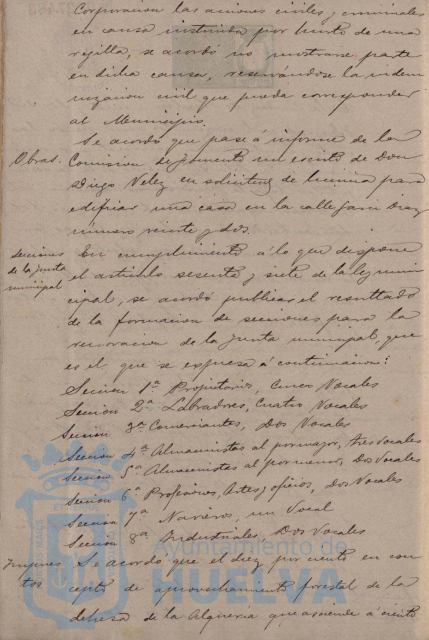 Corporacion las acciones civiles y criminales
en causa instruida por hurto de una
rejilla, se acordó no mostrarse parte
en dicha causa, reservándose la indem
nizacion civil que pueda corresponder
al Municipio.
Obras.
Se acordó que pase á informe de la
Comision de fomento un escrito de Don
Diego Velez en solicitud de licencia para
edificar una casa en la calle
número veinte y dos.
Secciones
de la Junta
municipal
En cumplimiento á lo que dispone
el articulo sesenta y siete de la ley muni
cipal, se acordó publicar el resultado
de la formacion de secciones para la
renovacion de la Junta municipal, que
es el que se espresa á continuacion:
Seccion 1ª Propietarios, Cinco Vocales
Seccion 2ª Labradores, Cuatro Vocales
Seccion 3ª Comerciantes, Dos Vocales
Seccion 4ª Almacenistas al por mayor, tres Vocales
Seccion 5ª Almacenistas al por menor, Dos Vocales
Seccion 6ª Profesiones, Artes y oficios, Dos Vocales
Seccion 7ª Navieros, un Vocal
Seccion 8ª Industriales, Dos Vocales
Se acordó que el diez por ciento en con
cepto de aprovechamiento forestal de la
dehesa de la Alqueria que asciende á ciento
Ayuntamiento de
HUELVA